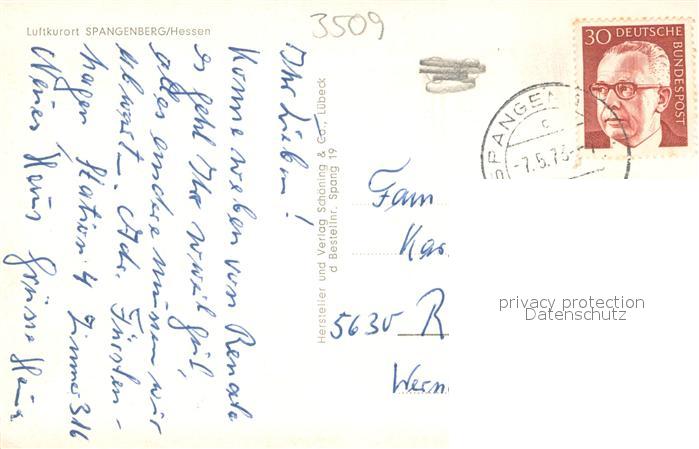 Luftkurort SPANGENBERG/Hessen
3509
Ihr Lieben!
Komme eben von Renate
es geht Ihr weil gut,
alles andere müssen wir
abwarten. Adr. Fürsten-
hagen Station 4 Zimmer 316
Neues Haus Grüsse
Hersteller und Verlag Schöning & Co., Lübeck
d Bestellnr. Spang 19
30 DEUTSCHE
BUNDESPOST
SPANGEN
c
-7.5.73-
Fam
Kas
5630 R
Wern
privacy protection
Datenschutz